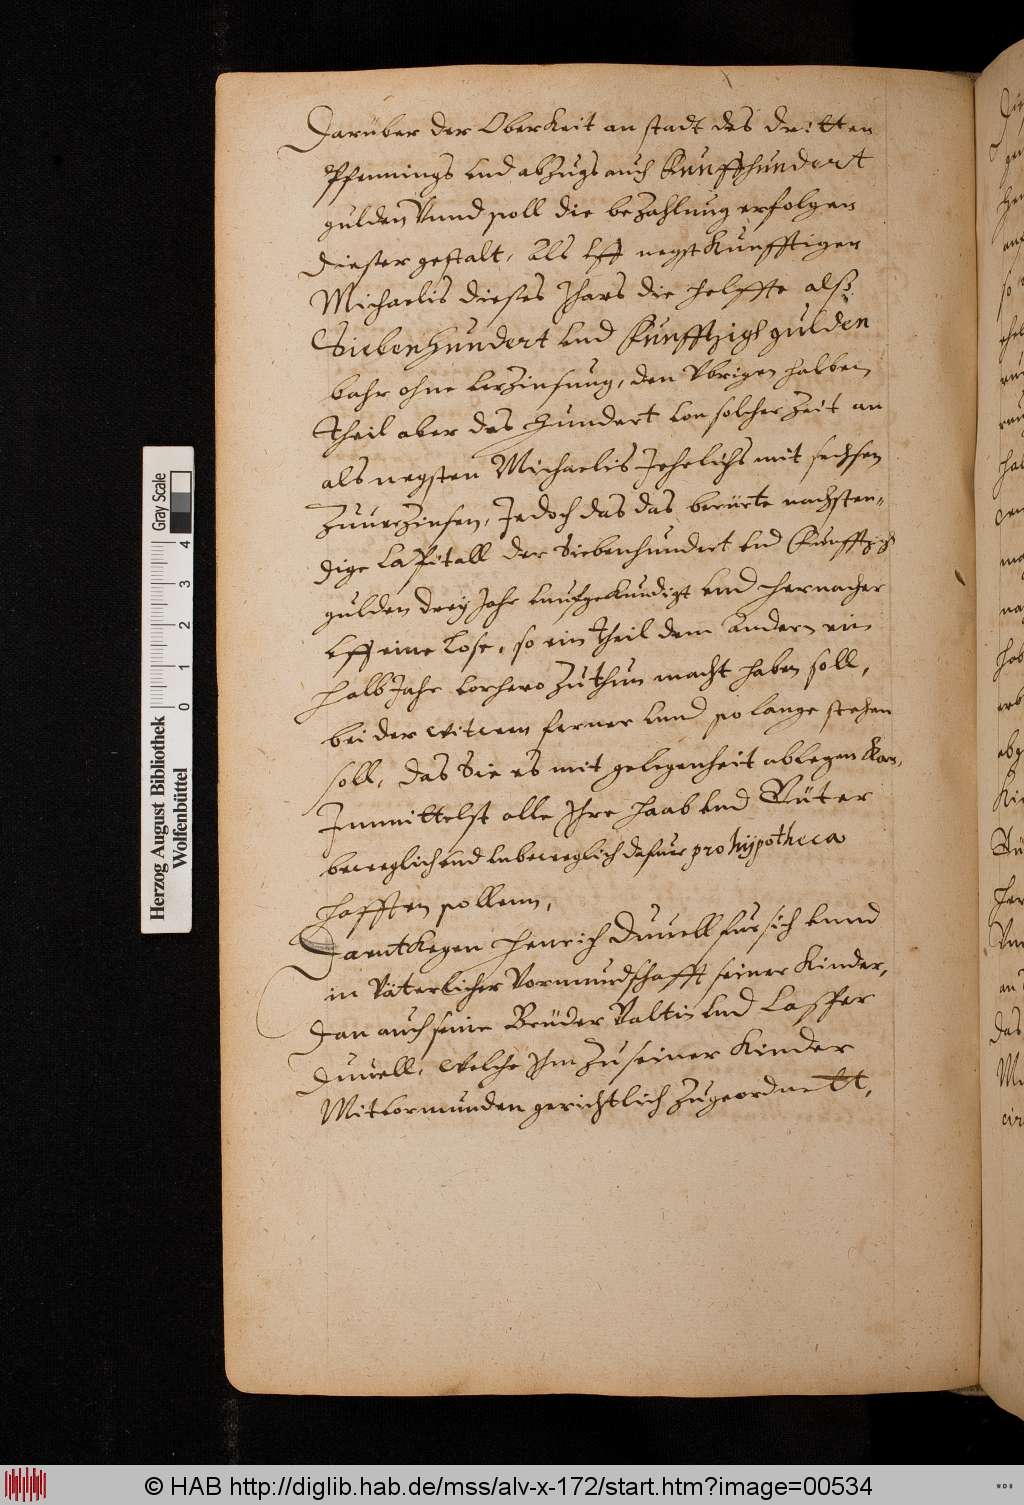 Darüber der Oberkeit an stadt des dritten
Pfennings vnd abzugs auch Funffhundert
gulden Vnnd soll die bezahlung erfolgen
dieser gestalt, Als vff negstkunfftigen
Michaelis dieses Jhars die helffte alß
Siebenhundert vnd Funfftzigk gulden
bahr ohne verzinsung, den Vbrigen halben
theil aber das Hundert von solcher Zeit an
als negsten Michaelis Jehrlichs mit sechsen
Zuuerzinsen, Jedoch das das berürte nachsten-
dige Capitall der Siebenhundert vnd Funfftzig
gulden drey Jahr vnufgekundigt vnd hernacher
vff eine Lose, so ein theil dem Andern ein
halb Jahr vorhero Zuthun macht haben soll,
bei der Witwen ferner vnnd so lange stehen
soll, das Sie es mit gelegenheit ablegen kan,
Immittelst alle Ihre Haab vnd Güter
beweglich vnd vnbeweglich dafuer pro hÿpotheca
hafften sollenn,
Darntkegen Henrich Duuell fur sich vnnd
in Väterlicher Vormundschafft seiner Kinder,
dan auch seine Brüder Valtin vnd Casper
Duuell, Welche Ihm Zu seiner Kinder
Mitvormunden gerichtlich Zugeordnett,
Herzog August Bibliothek
Wolfenbüttel
Gray Scale
0 1 2 3 4
© HAB http://diglib.hab.de/mss/alv-x-172/start.htm?image=00534